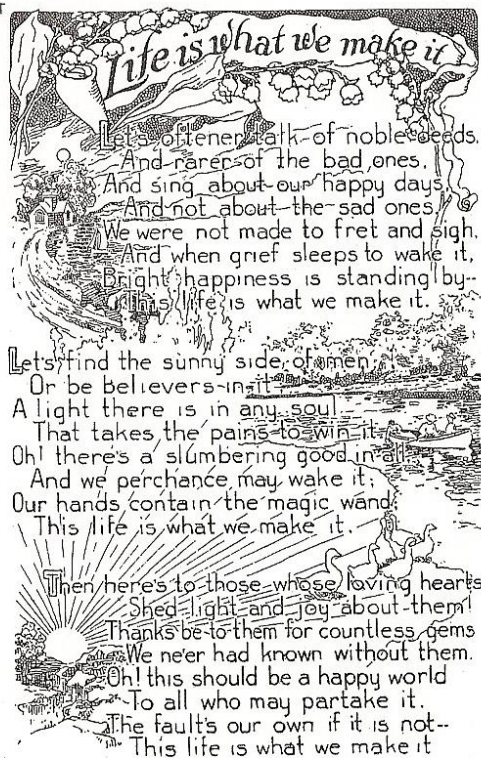 Life is what we make it
Let's oftener talk of noble deeds,
And rarer of the bad ones,
And sing about our happy days,
And not about the sad ones.
We were not made to fret and sigh,
And when grief sleeps to wake it,
Bright happiness is standing by--
This life is what we make it.
Let's find the sunny side of men,
Or be believers in it;
A light there is in any soul
That takes the pains to win it.
Oh! there's a slumbering good in all,
And we perchance may wake it;
Our hands contain the magic wand;
This life is what we make it.
Then here's to those whose loving hearts
Shed light and joy about them!
Thanks be to them for countless gems
We ne'er had known without them.
Oh! this should be a happy world
To all who may partake it.
The fault's our own if it is not--
This life is what we make it